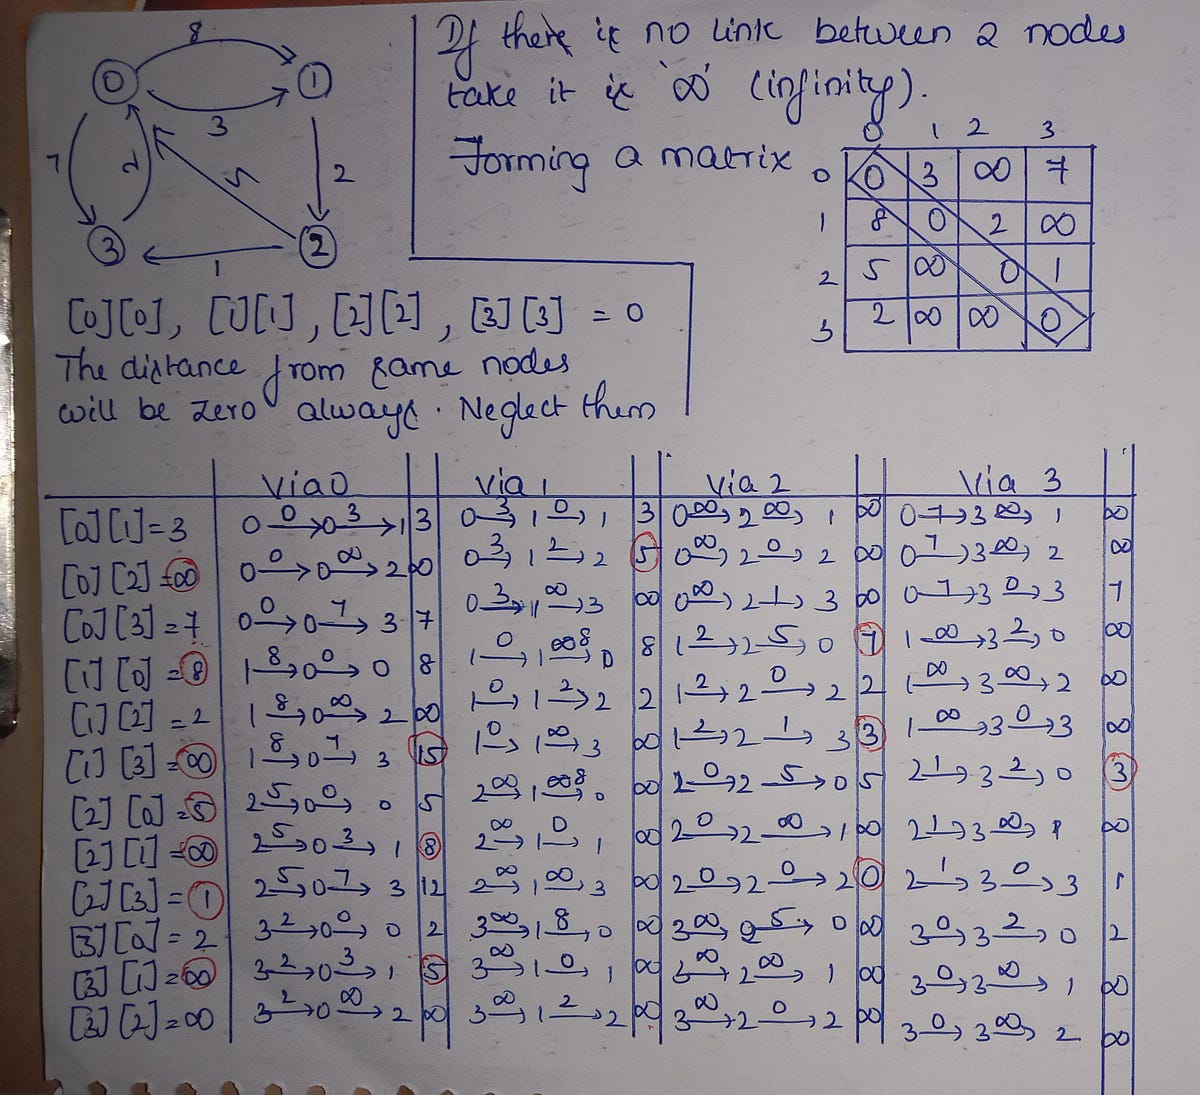 8
0
1
3
7
2
5
2
3
2
1
If there is no link between 2 nodes
take it is '∞' (infinity).
Forming a matrix
0 1 2 3
0 0 3 ∞ 7
1 8 0 2 ∞
2 5 ∞ 0 1
3 2 ∞ ∞ 0
[0][0], [1][1], [2][2], [3][3] = 0
The distance from same nodes
will be zero always. Neglect them
via 0 via 1 via 2 via 3
[0][1]=3 0 0→ 0 3→ 1 3 0 3→ 1 0→ 1 3 0 ∞→ 2 ∞→ 1 ∞ 0 7→ 3 ∞→ 1 ∞
[0][2]=∞ 0 0→ 0 ∞→ 2 ∞ 0 3→ 1 2→ 2 5 0 ∞→ 2 0→ 2 ∞ 0 7→ 3 ∞→ 2 ∞
[0][3]=7 0 0→ 0 7→ 3 7 0 3→ 1 ∞→ 3 ∞ 0 ∞→ 2 1→ 3 ∞ 0 7→ 3 0→ 3 7
[1][0]=8 1 8→ 0 0→ 0 8 1 0→ 1 8→ 0 8 1 2→ 2 5→ 0 7 1 ∞→ 3 2→ 0 ∞
[1][2]=2 1 8→ 0 ∞→ 2 ∞ 1 0→ 1 2→ 2 2 1 2→ 2 0→ 2 2 1 ∞→ 3 ∞→ 2 ∞
[1][3]=∞ 1 8→ 0 7→ 3 15 1 0→ 1 ∞→ 3 ∞ 1 2→ 2 1→ 3 3 1 ∞→ 3 0→ 3 ∞
[2][0]=5 2 5→ 0 0→ 0 5 2 ∞→ 1 8→ 0 ∞ 2 0→ 2 5→ 0 5 2 1→ 3 2→ 0 3
[2][1]=∞ 2 5→ 0 3→ 1 8 2 ∞→ 1 0→ 1 ∞ 2 0→ 2 ∞→ 1 ∞ 2 1→ 3 ∞→ 1 ∞
[2][3]=1 2 5→ 0 7→ 3 12 2 ∞→ 1 ∞→ 3 ∞ 2 0→ 2 0→ 2 0 2 1→ 3 0→ 3 1
[3][0]=2 3 2→ 0 0→ 0 2 3 ∞→ 1 8→ 0 ∞ 3 ∞→ 2 5→ 0 ∞ 3 0→ 3 2→ 0 2
[3][1]=∞ 3 2→ 0 3→ 1 5 3 ∞→ 1 0→ 1 ∞ 3 ∞→ 2 ∞→ 1 ∞ 3 0→ 3 ∞→ 1 ∞
[3][2]=∞ 3 2→ 0 ∞→ 2 ∞ 3 ∞→ 1 2→ 2 ∞ 3 ∞→ 2 0→ 2 ∞ 3 0→ 3 ∞→ 2 ∞